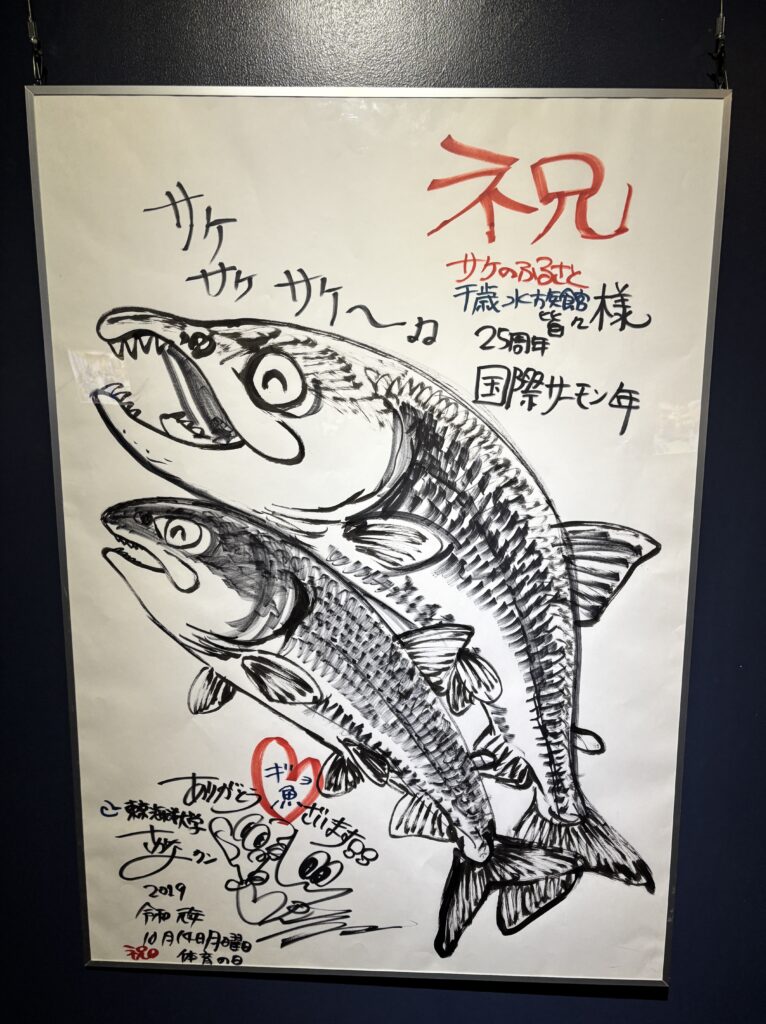 祝
サケ
サケ サケ〜♫
サケのふるさと
千歳水族館
皆々様
25周年
国際サーモン年
ありがとうギョ魚ざいます
東京海洋大学
さかなクン
2019
令和元年
10月14日月曜日
祝日 体育の日